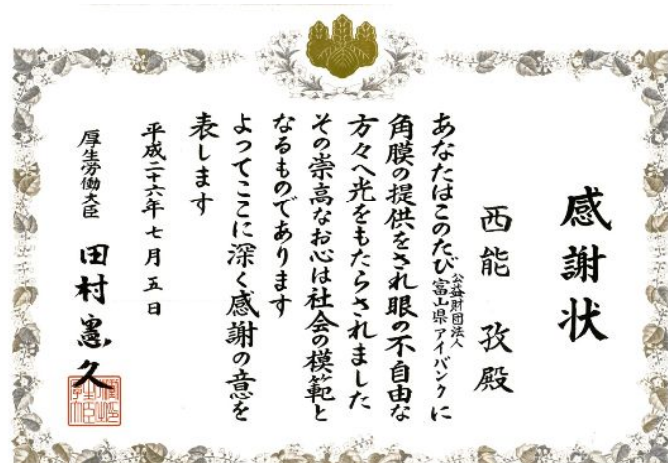 感謝状
西能 孜殿
あなたはこのたび公益財団法人富山県アイバンクに
角膜の提供をされ眼の不自由な
方々へ光をもたらされました
その崇高なお心は社会の模範と
なるものであります
よってここに深く感謝の意を
表します
平成二十六年七月五日
厚生労働大臣 田村憲久